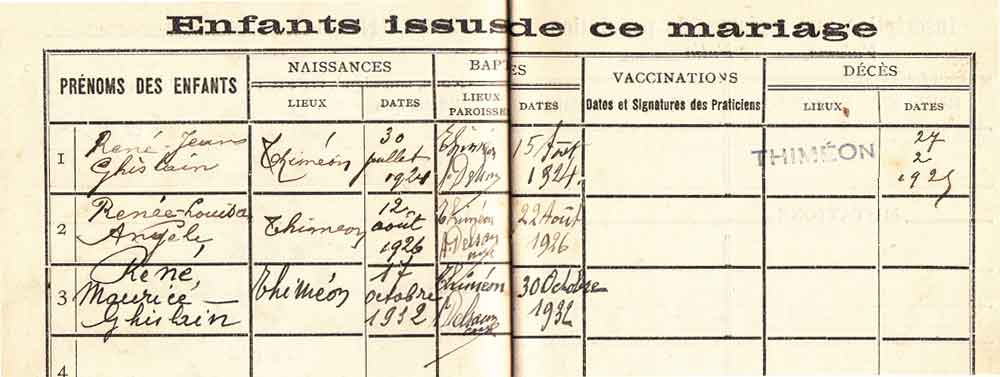 Enfants issus de ce mariage
PRÉNOMS DES ENFANTS
NAISSANCES
LIEUX
DATES
BAPT ES
LIEUX
PAROISSE
DATES
VACCINATIONS
Dates et Signatures des Praticiens
DÉCÈS
LIEUX
DATES
1
René-Jean
Ghislain
Thiméon
30
juillet
1924
Thiméon
15 Août
1924.
THIMÉON
27
2
1925
2
Renée-Louisa
Angèle,
Thiméon
12
août
1926
Thiméon
22 Août
1926
3
René,
Maurice
Ghislain
Thiméon
17
octobre
1932
Thiméon
30 Octobre
1932
4